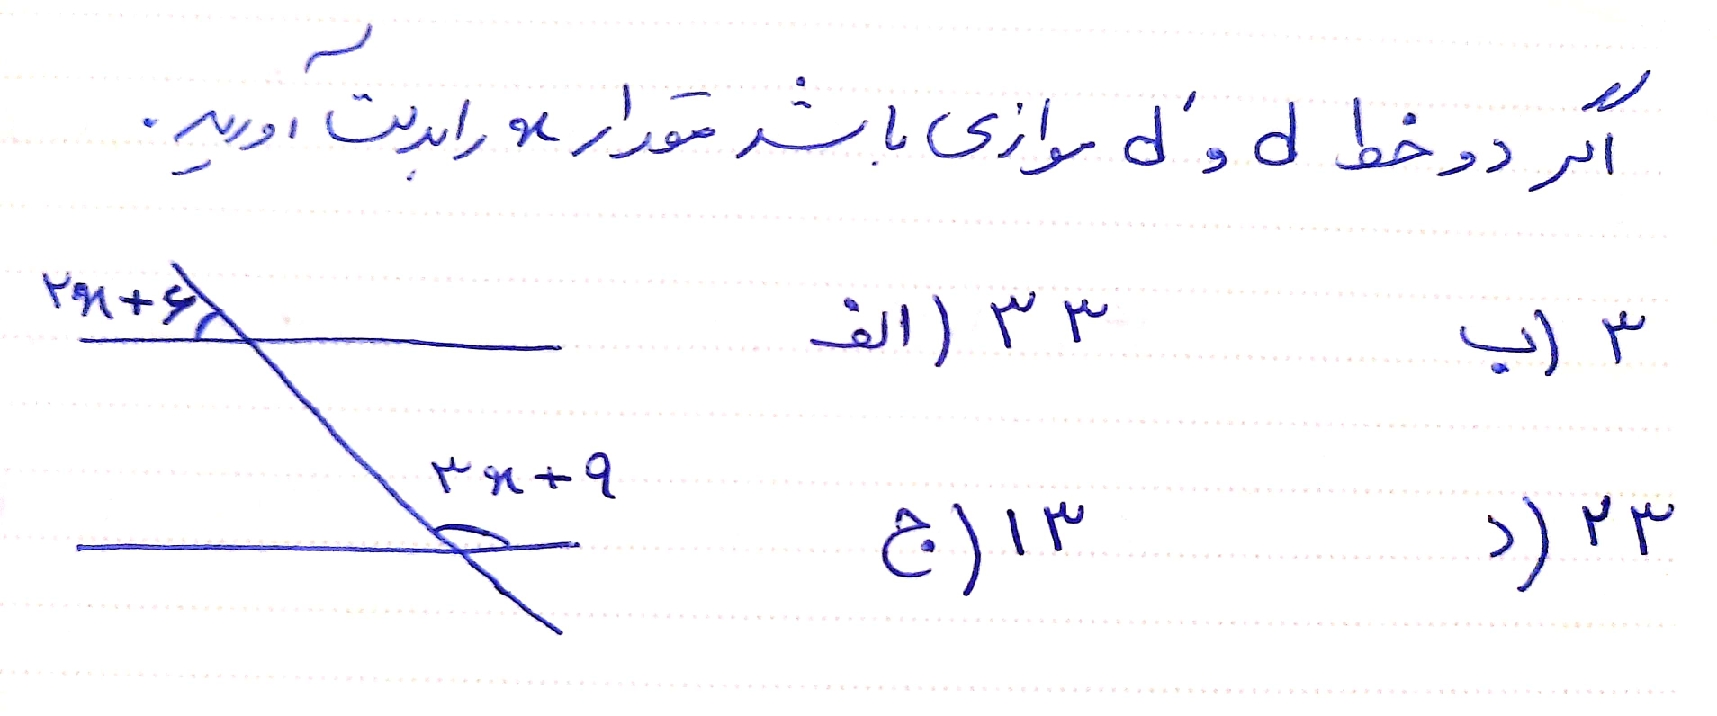 اگر دو خط d و d' موازی باشد مقدار x را بدست آورید.
۲x+۶
الف) ۳۳
ب) ۳
۳x+۹
ج) ۱۳
د) ۲۳